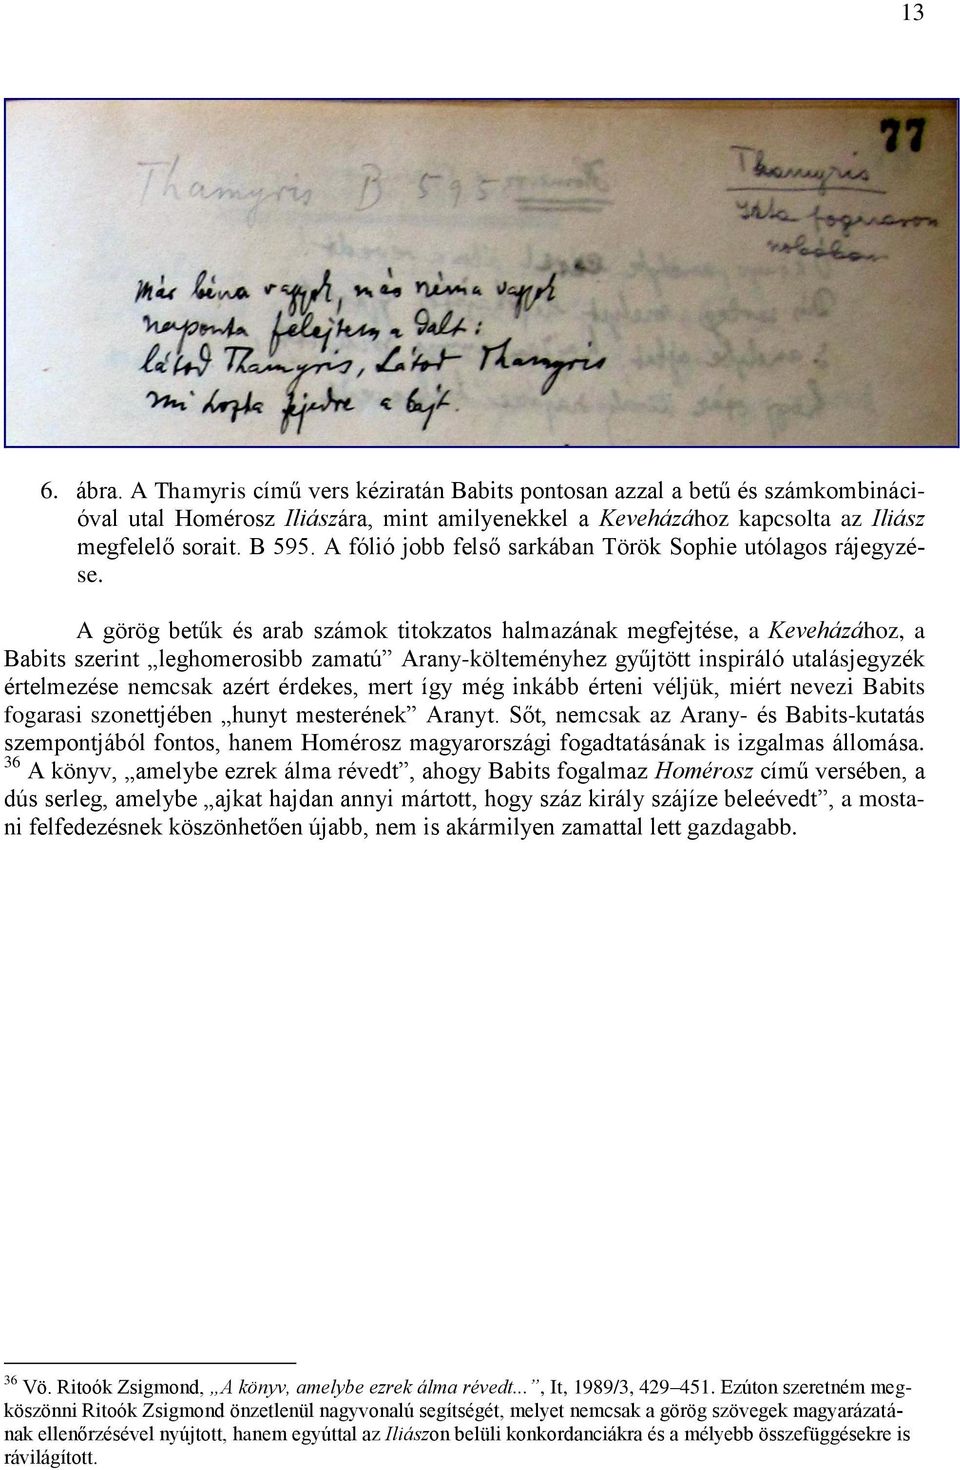 13
77
Thamyris B 595
Thamyris
Irta fogarason
nobában
Már béna vagyok, más néma vagyok
naponta felejtem a dalt:
látod Thamyris, Látod Thamyris
Mi hozta fejedre a bajt.
6. ábra. A Thamyris című vers kéziratán Babits pontosan azzal a betű és számkombináci-
óval utal Homérosz Iliászára, mint amilyenekkel a Keveházához kapcsolta az Iliász
megfelelő sorait. B 595. A fólió jobb felső sarkában Török Sophie utólagos rájegyzé-
se.
A görög betűk és arab számok titokzatos halmazának megfejtése, a Keveházához, a
Babits szerint „leghomerosibb zamatú” Arany-költeményhez gyűjtött inspiráló utalásjegyzék
értelmezése nemcsak azért érdekes, mert így még inkább érteni véljük, miért nevezi Babits
fogarasi szonettjében „hunyt mesterének” Aranyt. Sőt, nemcsak az Arany- és Babits-kutatás
szempontjából fontos, hanem Homérosz magyarországi fogadtatásának is izgalmas állomása.
36 A könyv, „amelybe ezrek álma révedt”, ahogy Babits fogalmaz Homérosz című versében, a
dús serleg, amelybe „ajkat hajdan annyi mártott, hogy száz király szájíze beleévedt”, a mosta-
ni felfedezésnek köszönhetően újabb, nem is akármilyen zamattal lett gazdagabb.
36 Vö. Ritoók Zsigmond, „A könyv, amelybe ezrek álma révedt...”, It, 1989/3, 429–451. Ezúton szeretném meg-
köszönni Ritoók Zsigmond önzetlenül nagyvonalú segítségét, melyet nemcsak a görög szövegek magyarázatá-
nak ellenőrzésével nyújtott, hanem egyúttal az Iliászon belüli konkordanciákra és a mélyebb összefüggésekre is
rávilágított.